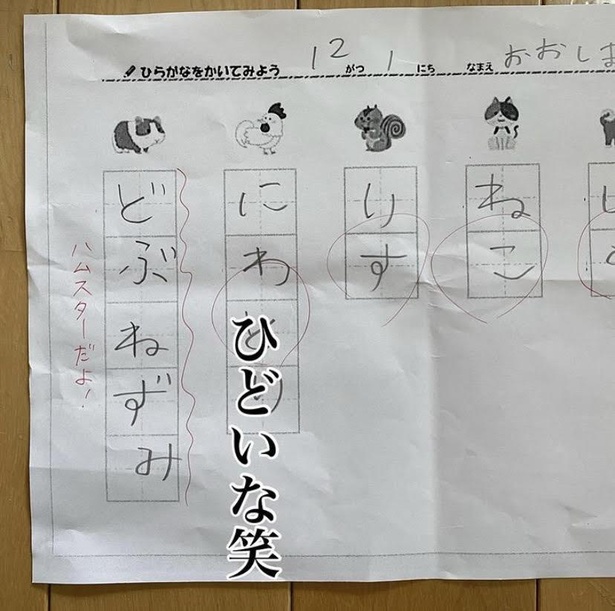 ひらがなをかいてみよう 12がつ1にち なまえ おおしま
ねこ
りす
にわとり
どぶねずみ
ハムスターだよ!
ひどいな笑